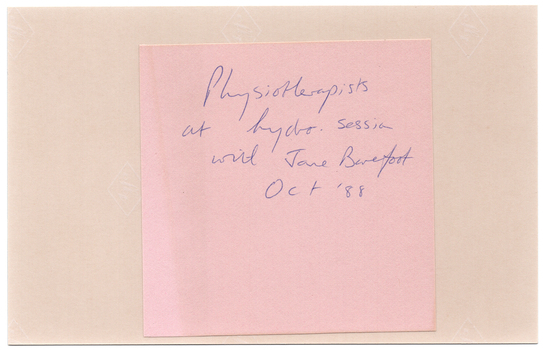 Physiotherapists
at hydro. session
with Jane Barefoot
Oct '88